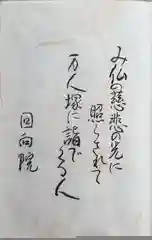 み仏の慈悲の光に
照らされて
万人塚に詣で
くる人
回向院